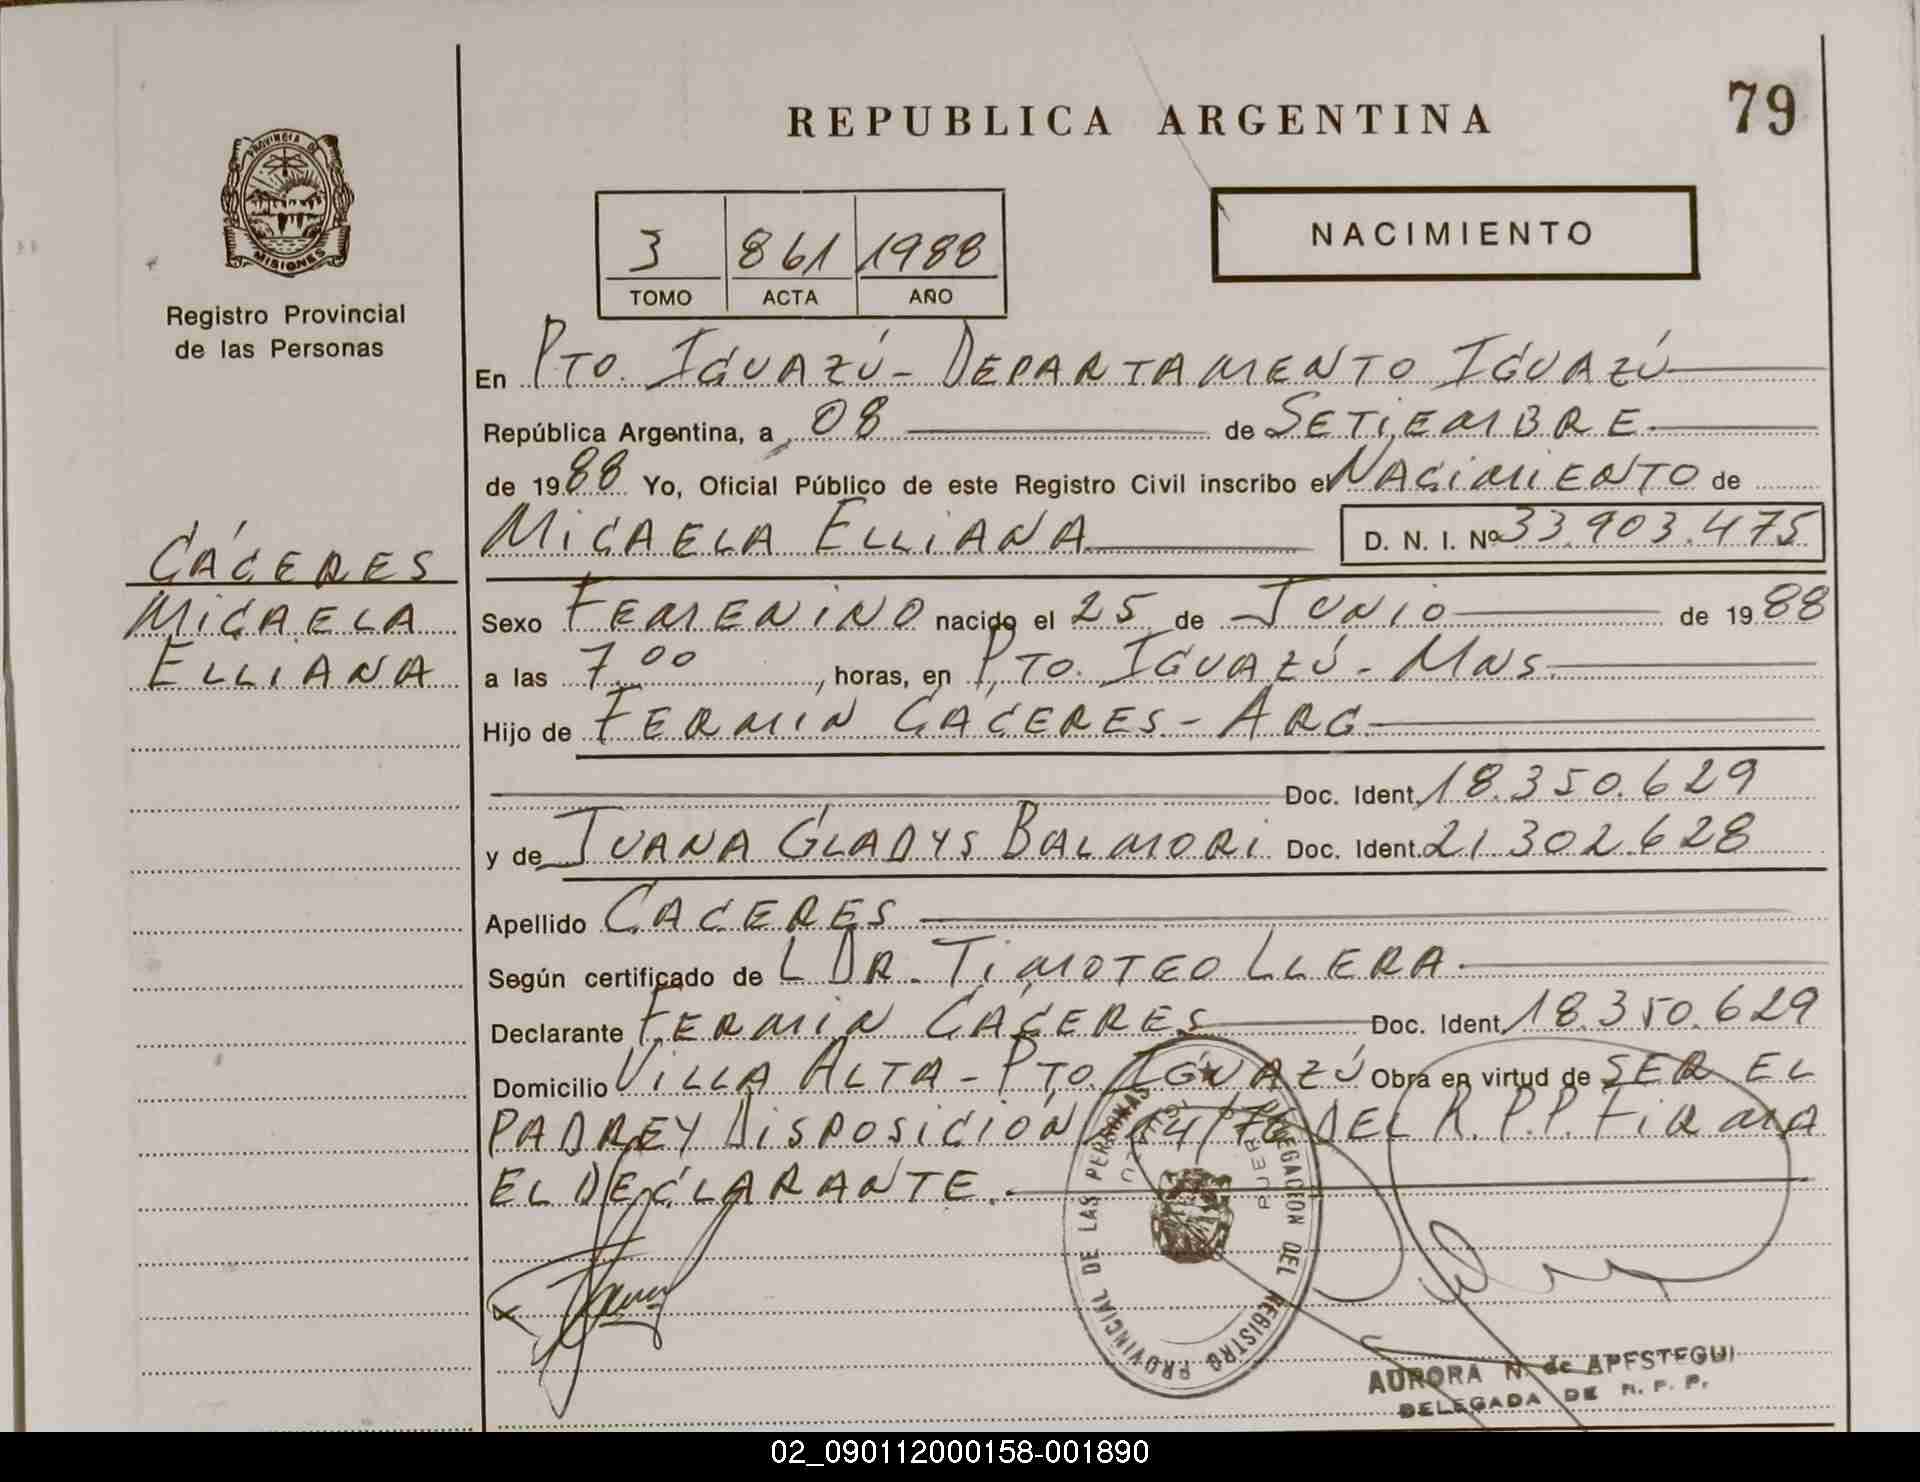 REPUBLICA ARGENTINA
79
PROVINCIA DE
MISIONES
Registro Provincial
de las Personas
3 861 1988
TOMO ACTA AÑO
NACIMIENTO
En PTO. IGUAZÚ - DEPARTAMENTO IGUAZÚ
República Argentina, a 08 de SETIEMBRE
de 1988 Yo, Oficial Público de este Registro Civil inscribo el NACIMIENTO de
MICAELA ELLIANA D. N. I. Nº 33.903.475
CÁCERES
MICAELA
ELLIANA
Sexo FEMENINO nacido el 25 de JUNIO de 1988
a las 7.00, horas, en PTO. IGUAZÚ - MNS.
Hijo de FERMÍN CÁCERES - ARG
Doc. Ident. 18.350.629
y de JUANA GLADYS BALMORI Doc. Ident. 21.302.628
Apellido CACERES
Según certificado de L DR. TIMOTEO LLERA
Declarante FERMÍN CÁCERES Doc. Ident. 18.350.629
Domicilio VILLA ALTA - PTO. IGUAZÚ Obra en virtud de SER EL
PADRE Y DISPOSICIÓN 14/76 DEL R.P.P. FIRMA
EL DECLARANTE.
DELEGACION DEL REGISTRO PROVINCIAL DE LAS PERSONAS
AURORA N. de APESTEGUI
DELEGADA DE R. P. P.
02_090112000158-001890